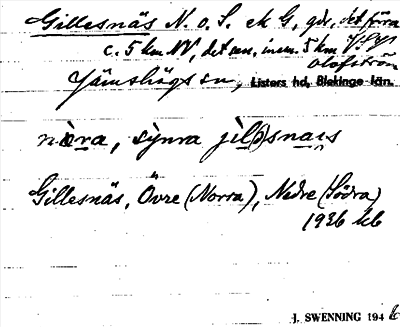 Gillesnäs N. o. S. ek G, gdr, det förra
c. 5 km NV, det sen. inem. 5 km VSV
Olofström
Jämshögs sn, Listers hd, Blekinge län.
nòra, sỳnra jìl(ə)snais
Gillesnäs, Övre (Norra), Nedre (Södra)
1926 kb
J. SWENNING 1946